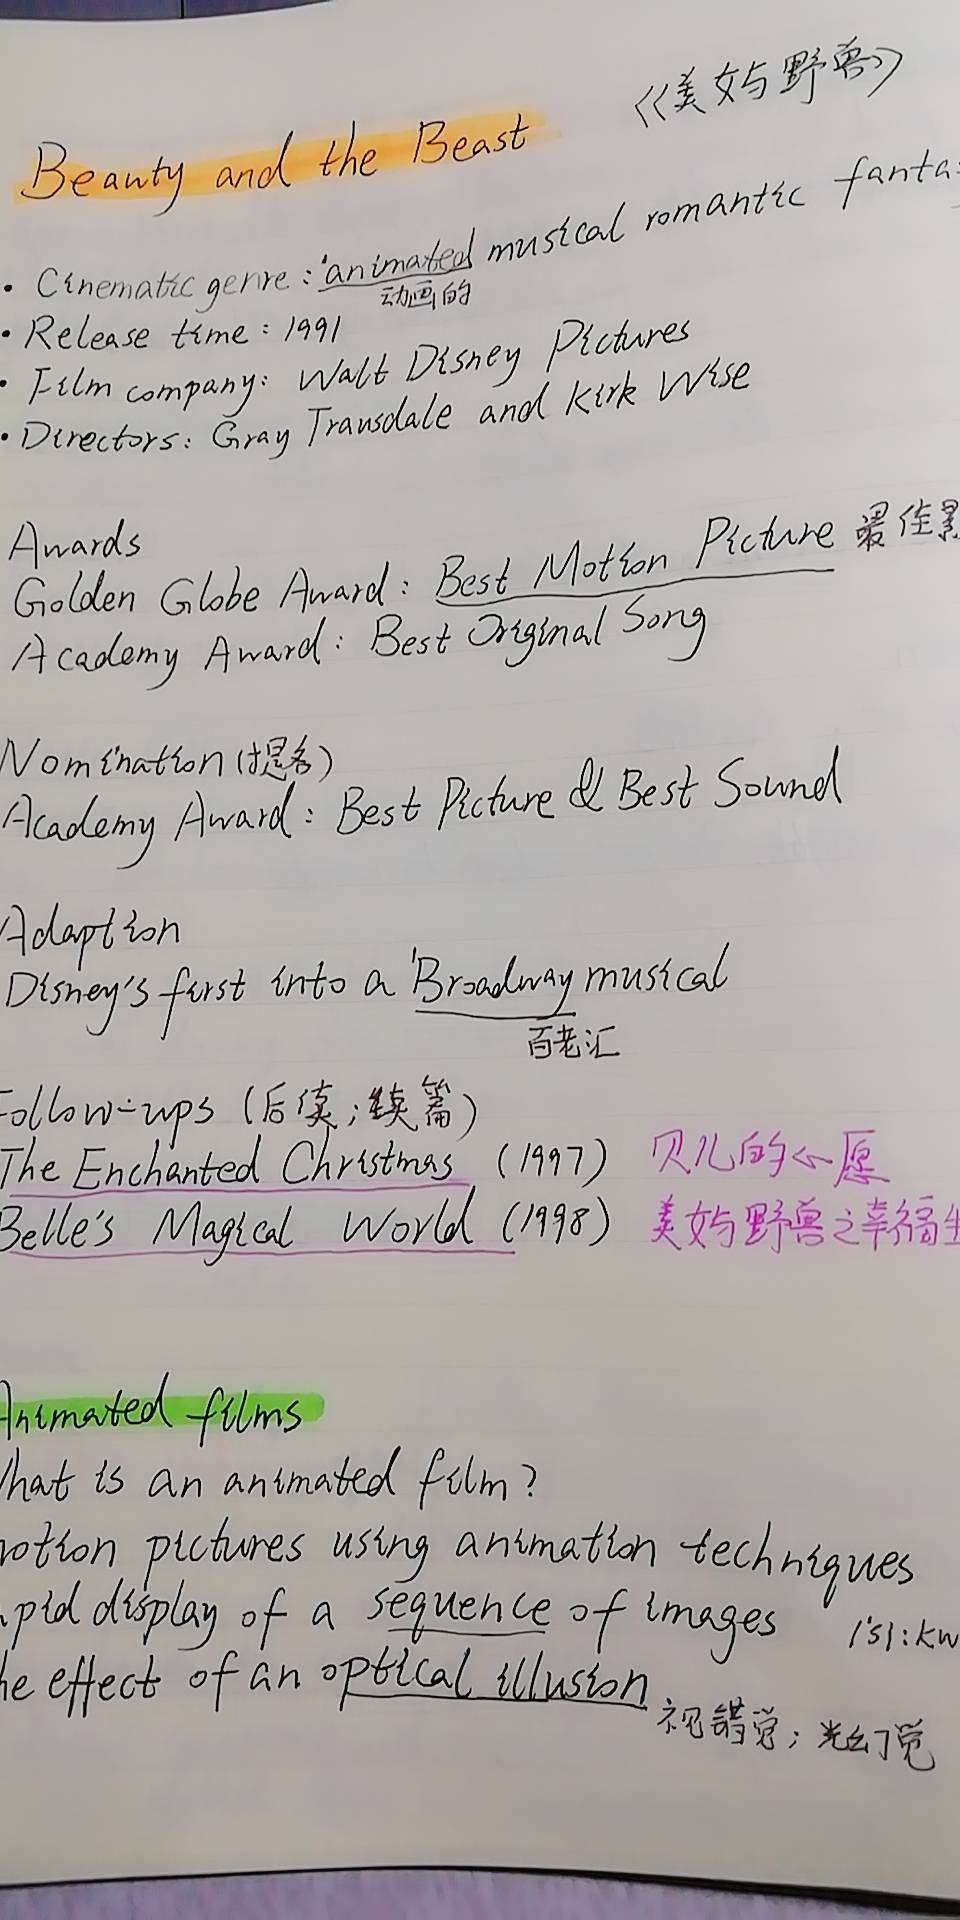 《美女与野兽》
Beauty and the Beast
• Cinematic genre: 'animated musical romantic fanta
动画的
• Release time: 1991
• Film company: Walt Disney Pictures
• Directors: Gray Transdale and Kirk Wise
Awards
Golden Globe Award: Best Motion Picture 最佳
Academy Award: Best Original Song
Nomination (提名)
Academy Award: Best Picture & Best Sound
Adaption
Disney's first into a 'Broadway musical
百老汇
ollow-ups (后续;续篇)
The Enchanted Christmas (1997) 贝儿的心愿
Belle's Magical World (1998) 美女与野兽之幸福生
Animated films
hat is an animated film?
otion pictures using animation techniques
apid display of a sequence of images /'si:kw
he effect of an optical illusion
视错觉;光幻觉